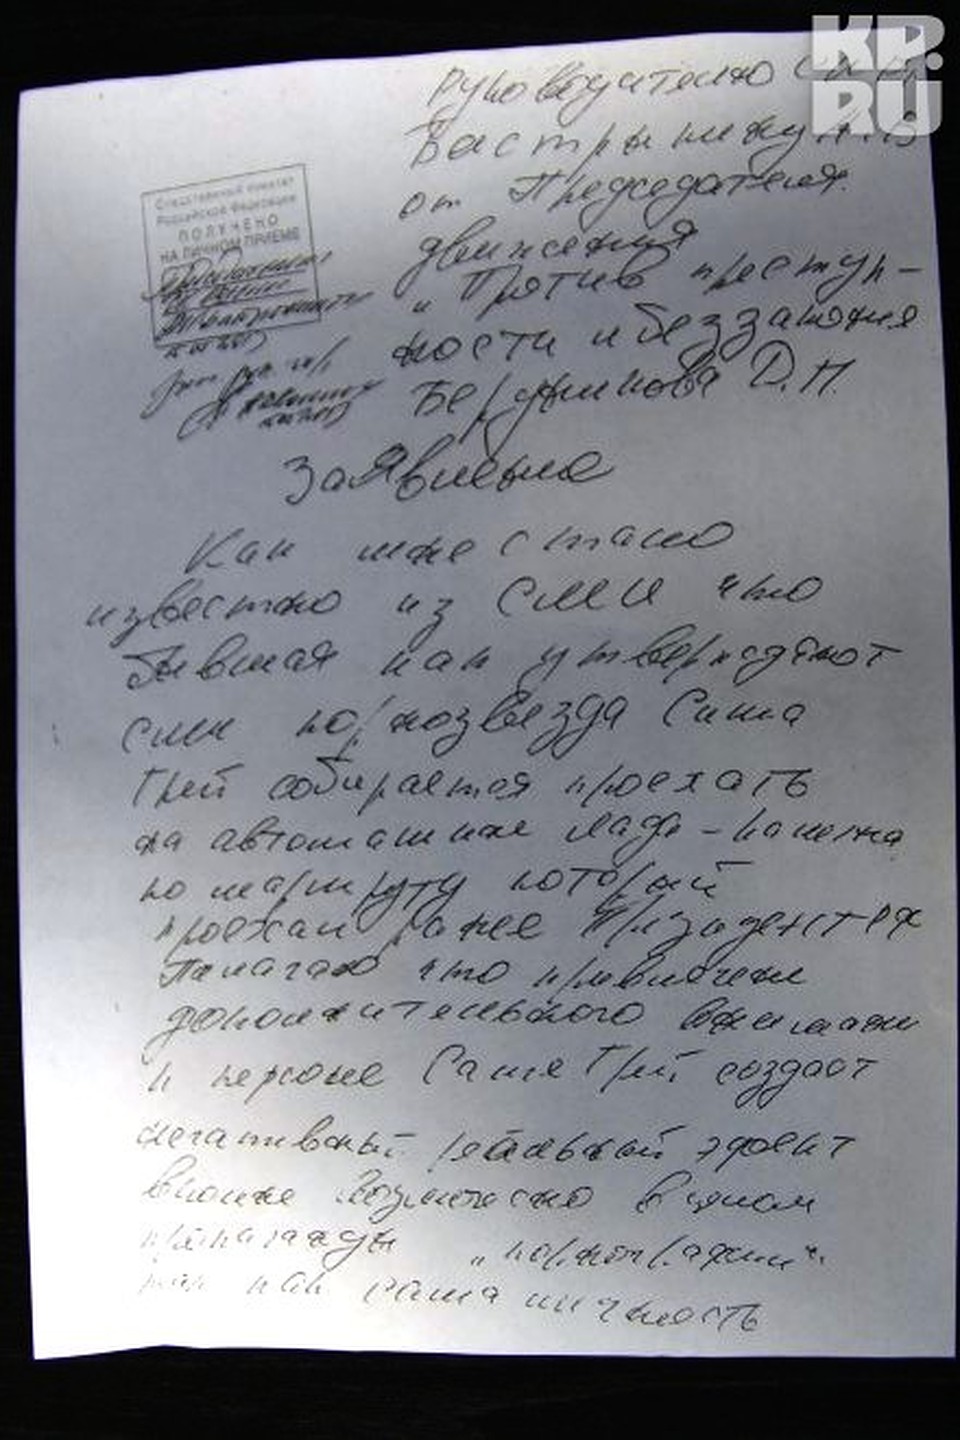 KP.
RU
Руководителю
Бастрыкину
от Председателя
движения
„Против преступ-
ности и беззакония
Бердникова Д.Н.
Следственный комитет
Российской Федерации
ПОЛУЧЕНО
НА ЛИЧНОМ ПРИЕМЕ
Заявление
Как мне стало
известно из СМИ что
бывшая как утверждают
сми порнозвезда Саша
Грей собирается проехать
на автомашине Лада-Калина
по маршруту который
проехал ранее
Полагаю что привлечени
дополнительного внимани
к персоне Саше Грей создает
негативный эфект
вполне возможно в целом
пропаганды „порнографии“.
так как сама личность